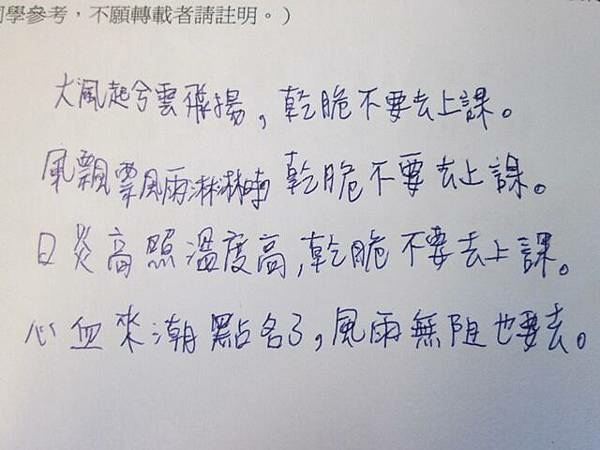 同學參考，不願轉載者請註明。）
大風起兮雲飛揚，乾脆不要去上課。
風飄飄風雨淋淋時乾脆不要去上課。
日炎高照溫度高，乾脆不要去上課。
心血來潮點名了，風雨無阻也要去。